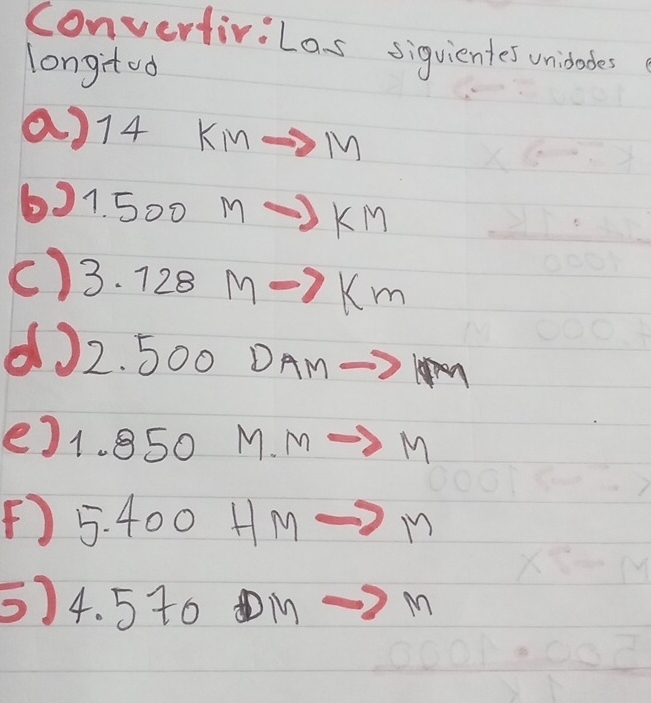 Convertir: Las siguientes unidades
longitud
a) 14 KM → M
b) 1.500 M → KM
c) 3.128 M → Km
d) 2.500 DAM →
e) 1.850 M.M → M
F) 5.400 HM → M
5) 4.570 DM → M